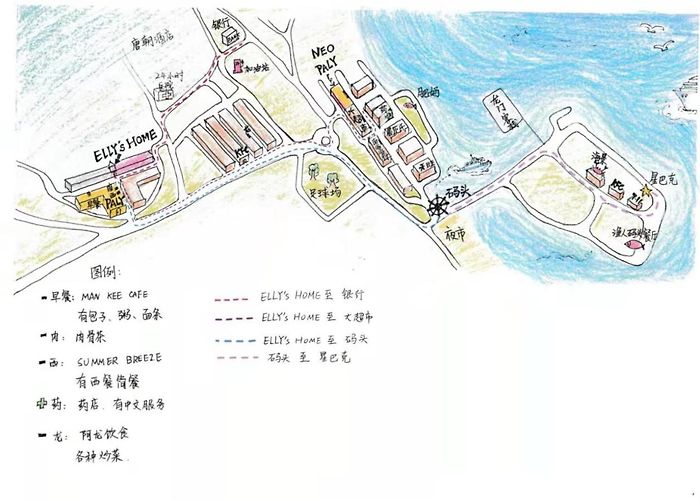 银行
BANK
唐朝酒店
加油站
24小时
NEO
PALY
ELLY's HOME
大超市
KFC
早餐
PALY
足球场
码头
夜市
龙门客栈
海星
KFC
星巴克
渔人码头餐厅
图例:
早餐: MAN KEE CAFE
有包子、粥、面条
肉: 肉骨茶
西: SUMMER BREEZE
有西餐简餐
药: 药店、有中文服务
龙: 阿龙饮食
各种炒菜
ELLY's HOME 至 银行
ELLY's HOME 至 大超市
ELLY's HOME 至 码头
码头 至 星巴克